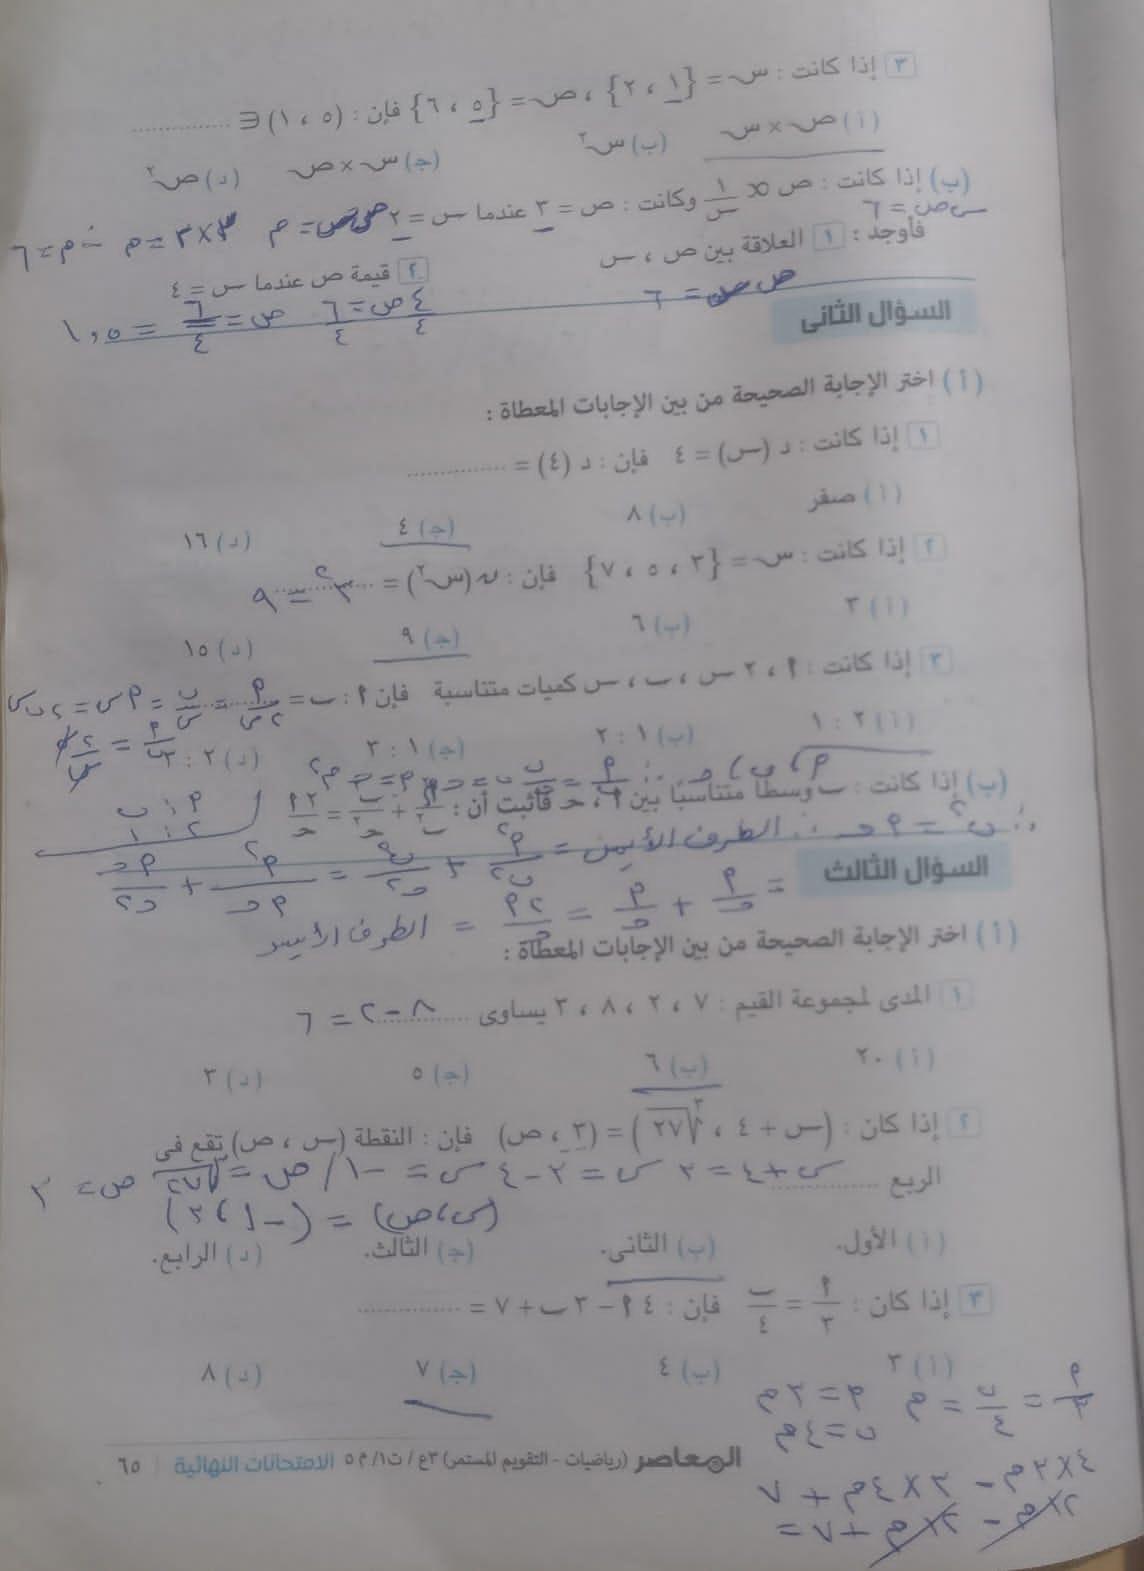 ٣ إذا كانت : س = {١ ، ٢} ، ص = {٥ ، ٦} فإن : (٥ ، ١) ∈ ..............
(أ) ص × س (ب) س٢ (ج) س × ص (د) ص٢
(ب) إذا كانت : ص ∝ ١/س وكانت : ص = ٣ عندما س = ٢
س ص = ٦
ص س = م م = ٣×٢ ∴ م = ٦
فأوجد : ١ العلاقة بين ص ، س ٢ قيمة ص عندما س = ٤
ص س = ٦
٤ص/٤ = ٦/٤ ص = ٦/٤ = ١,٥
السؤال الثانى
(أ) اختر الإجابة الصحيحة من بين الإجابات المعطاة :
١ إذا كانت : د (س) = ٤ فإن : د (٤) = ..............
(أ) صفر (ب) ٨ (ج) ٤ (د) ١٦
٢ إذا كانت : س = {٣ ، ٥ ، ٧} فإن : ن(س٢) = ..............
٣٢ = ٩
(أ) ٣ (ب) ٦ (ج) ٩ (د) ١٥
٣ إذا كانت : ٢ ، أ س ، ب ، س كميات متناسبة فإن أ : ب =
(أ) ٢ : ١ (ب) ١ : ٢ (ج) ١ : ٣ (د) ٢ : ٣
أ : ب
٢ : ١
(ب) إذا كانت : ب وسطًا متناسبًا بين أ ، ح فأثبت أن : أ٢/ب٢ + ب٢/ح٢ = ٢أ/ح
∴ ب٢ = أ ح ∴ الطرف الأيمن = أ٢/ب٢ + ب٢/ح٢ = أ٢/أ ح + أ ح/ح٢
السؤال الثالث
= أ/ح + أ/ح = ٢أ/ح = الطرف الأيسر
(أ) اختر الإجابة الصحيحة من بين الإجابات المعطاة :
١ المدى لمجموعة القيم : ٧ ، ٢ ، ٨ ، ٣ يساوى ..............
٨ - ٢ = ٦
(أ) ٢٠ (ب) ٦ (ج) ٥ (د) ٣
٢ إذا كان : (س + ٤ ، ∛٢٧) = (٣ ، ص) فإن : النقطة (س ، ص) تقع فى
الربع ..............
س + ٤ = ٣ س = ٣ - ٤ س = -١ / ص = ∛٢٧ ص = ٣
(س ، ص) = (-١ ، ٣)
(أ) الأول. (ب) الثانى. (ج) الثالث. (د) الرابع.
٣ إذا كان : أ/٣ = ب/٤ فإن : ٤ أ - ٣ ب + ٧ = ..............
(أ) ٣ (ب) ٤ (ج) ٧ (د) ٨
أ/٣ = ب/٤ = م أ = ٣م
ب = ٤م
٤×٣م - ٣×٤م + ٧
١٢م - ١٢م + ٧ =
المعاصر (رياضيات - التقويم المستمر) ٣ع / ت١ / م٥ الامتحانات النهائية ٦٥